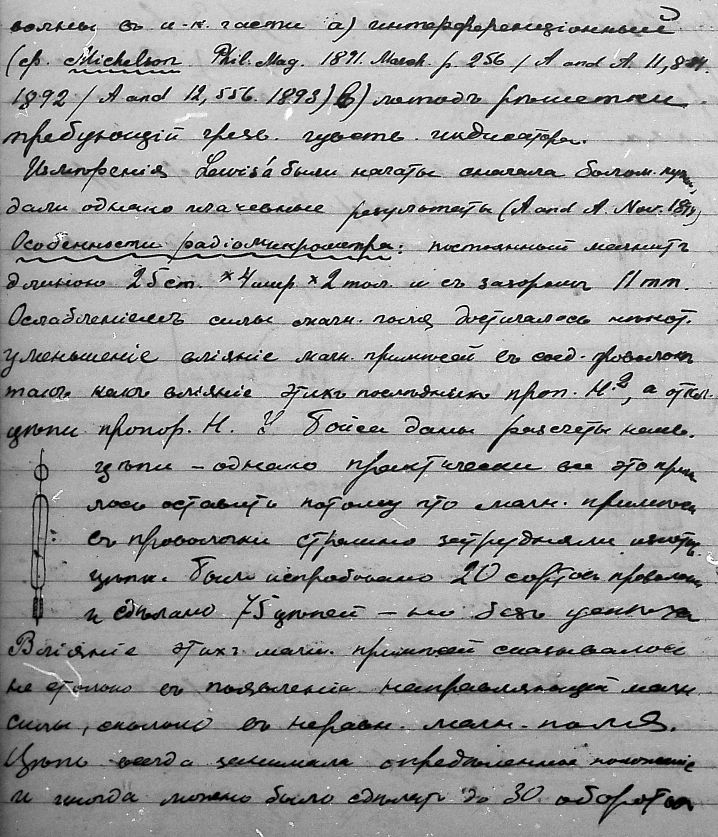 волны въ и-к. части а) интерференціонный
(ср. Michelson Phil. Mag. 1891. March p. 256 / A and A. 11, 884.
1892 / A and 12, 556. 1893) b) методъ рѣшетки
требующій чрезв. чувств. индикатора.
Измѣренія Lewis'а были начаты сначала болом.
дали однако плачевные результаты (A and A. Nov.
Особенности радіомикрометра: постоянный магнитъ
длиною 25 cm. × 4 шир × 2 тол. и съ зазоромъ 11 mm.
Ослабленіемъ силы магн. поля достигалось
уменьшеніе вліяніе магн. примѣсей въ соед. проволокѣ
такъ какъ вліяніе этихъ послѣднихъ проп. H², а откл.
цѣпи пропор. H. У Бойса даны разсчеты наив.
цѣпи – однако практически все это
лось оставить потому что магн. примѣси
въ проволочки страшно затрудняли
цѣпи. Было испробовано 20 сортовъ проволоки
и сдѣлано 75 цѣпей – но безъ успѣха
Вліяніе этихъ магн. примѣсей сказывалось
не столько въ появленіи направляющей магн.
силы, сколько въ неравн. магн. поля.
Цѣпь всегда занимала опредѣленное положеніе
и иногда можно было сдѣлать до 30 оборотовъ